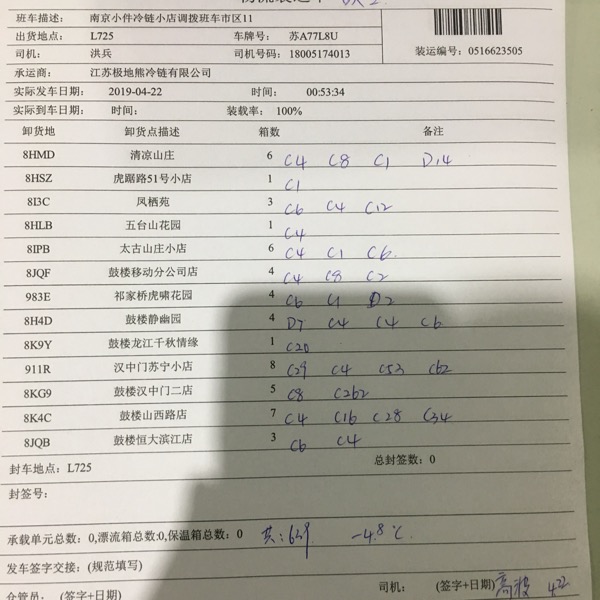 班车描述： 南京小件冷链小店调拨班车市区11
出货地点： L725 车牌号： 苏A77L8U
司机： 洪兵 司机号码：18005174013 装运编号：0516623505
承运商： 江苏极地熊冷链有限公司
实际发车日期： 2019-04-22 时间： 00:53:34
实际到车日期： 时间： 装载率： 100%
卸货地 卸货点描述 箱数 备注
8HMD 清凉山庄 6 C4 C8 C1 D14
8HSZ 虎踞路51号小店 1 C1
8I3C 凤栖苑 3 C6 C4 C12
8HLB 五台山花园 1 C4
8IPB 太古山庄小店 6 C4 C1 C6
8JQF 鼓楼移动分公司店 4 C4 C8 C2
983E 祁家桥虎啸花园 4 C6 C1 D2
8H4D 鼓楼静幽园 4 D7 C4 C4 C6
8K9Y 鼓楼龙江千秋情缘 1 C20
911R 汉中门苏宁小店 8 C29 C4 C53 C62
8KG9 鼓楼汉中门二店 5 C8 C262
8K4C 鼓楼山西路店 7 C4 C16 C28 C34
8JQB 鼓楼恒大滨江店 3 C6 C4
封车地点：L725 总封签数：0
封签号：
承载单元总数：0,漂流箱总数:0,保温箱总数：0 共： -4.8℃
发车签字交接：(规范填写)
仓管员： (签字+日期) 司机： (签字+日期) 4.22